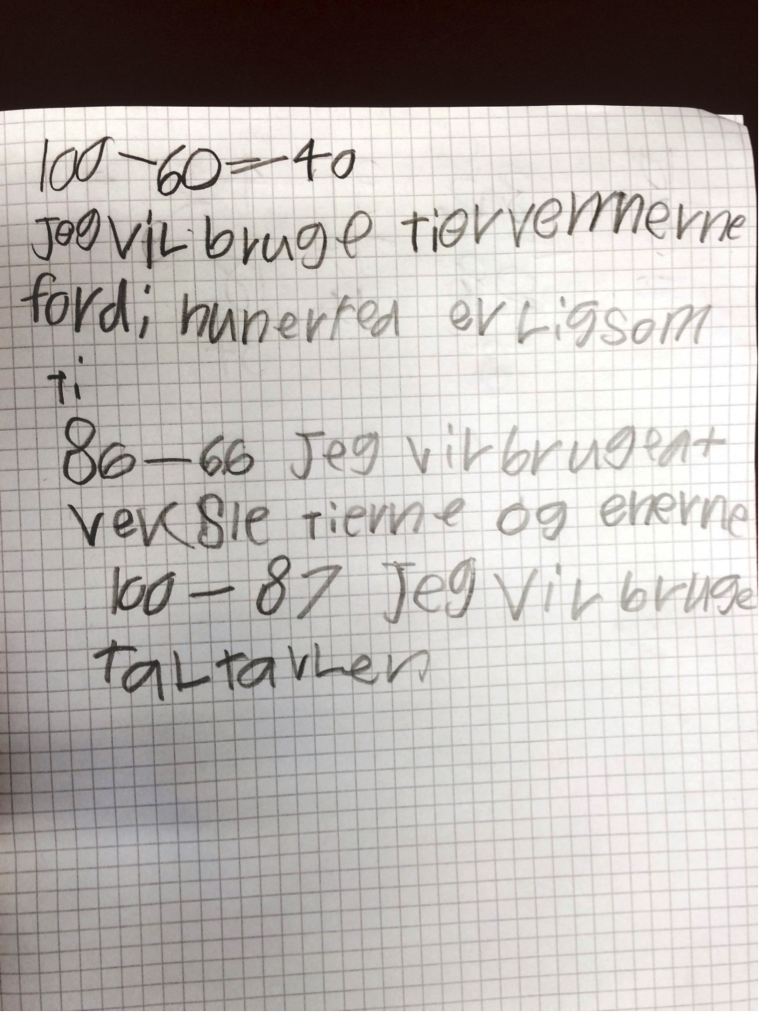 100-60=40
Jeg vil bruge tiervennerne
fordi hunerred er Ligsom
ti
86-66 Jeg vil brugeat
veksle tierne og enerne
100-87 Jeg vil bruge
taltavlen